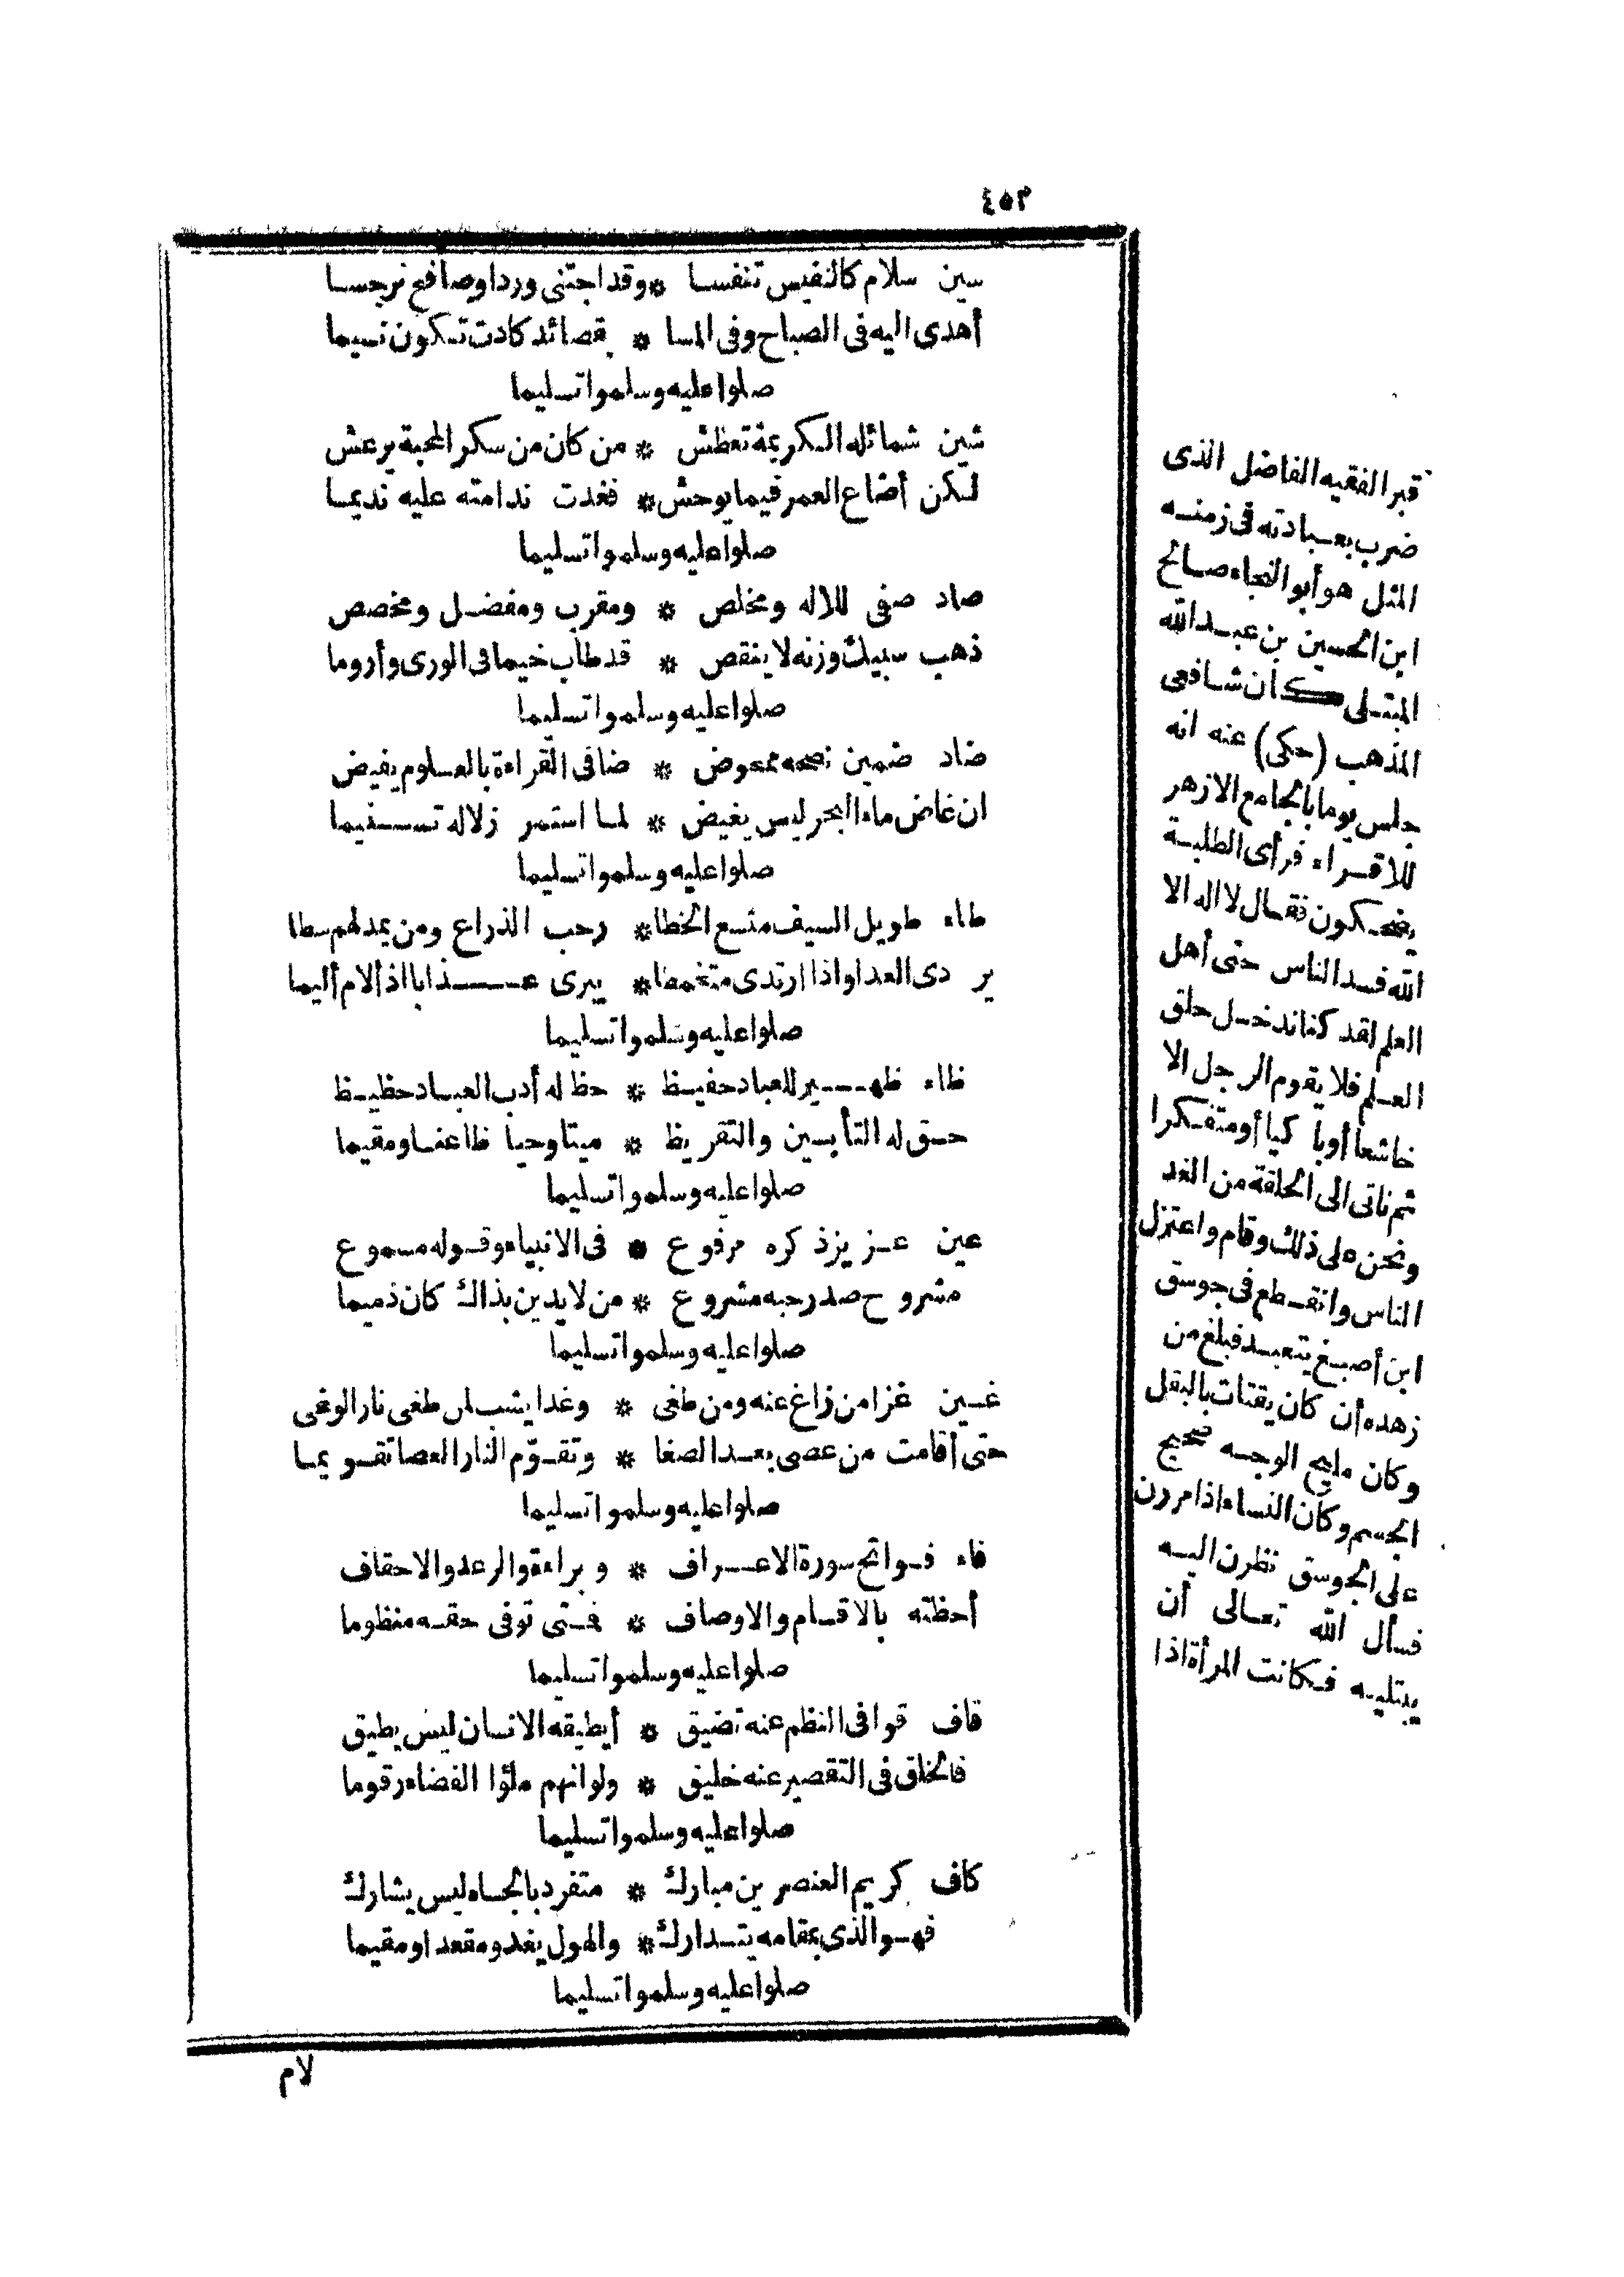 ٤٥٣
سين سلام كالنفيس تنفسا * وقد اجتنى ورداوصافح نرجسا
أهدى اليه فى الصباح وفى المسا * قصائد كادت تكون نسيما
صلوا عليه وسلموا تسليما
شين شمائله الكريمة تعطش * من كان من سكر المحبة يرعش
لكن أضاع العمر فيما يوحش * فغدت ندامته عليه نديما
صلوا عليه وسلموا تسليما
صاد صفى للاله ومخلص * ومقرب ومفضل ومخصص
ذهب سبيك وزنه لا ينقص * قد طاب خيما فى الورى وأروما
صلوا عليه وسلموا تسليما
ضاد ضمين نصحه ممعوض * ضافى القراءة بالعلوم يفيض
ان غاض ماء البحر ليس يغيض * لما استمر زلاله تسنيما
صلوا عليه وسلموا تسليما
طاء طويل السيف متسع الخطا * رحب الذراع ومن يمد لهم سطا
يردى العدا واذا ارتدى متخمطا * يبرى عذابا اذ ألام أليما
صلوا عليه وسلموا تسليما
ظاء ظهير للعباد حفيظ * حظ له أدب العباد حظيظ
حق له التأبين والتقريظ * ميتا وحيا ظاعنا ومقيما
صلوا عليه وسلموا تسليما
عين عزيز ذكره مرفوع * فى الانبياء وقوله مسموع
مشروح صدر حبه مشروع * من لا يدين بذاك كان ذميما
صلوا عليه وسلموا تسليما
غين غزا من زاغ عنه ومن طغى * وغدا يشب لمن طغى نار الوغى
حتى أقامت من عصى بعد الصغا * وتقوّم النار العصا تقويما
صلوا عليه وسلموا تسليما
فاء فواتح سورة الاعراف * وبراءة والرعد والاحقاف
أحظته بالاقسام والاوصاف * فمتى توفى حقه منظوما
صلوا عليه وسلموا تسليما
قاف قوافى النظم عنه تضيق * أيطيقه الانسان ليس يطيق
فالخلق فى التقصير عنه خليق * ولو انهم ملؤا الفضاء رقوما
صلوا عليه وسلموا تسليما
كاف كريم العنصرين مبارك * متفرد بالجاه ليس يشارك
فهو الذى بمقامه يتدارك * والهول يغدو مقعدا ومقيما
صلوا عليه وسلموا تسليما
لام
قبر الفقيه الفاضل الذى
ضرب بعبادته فى زمنه
المثل هو أبو النجاء صالح
ابن الحسين بن عبد الله
المبتلى كان شافعى
المذهب (حكى) عنه انه
جلس يوما بالجامع الازهر
للاقراء فرأى الطلبة
يضحكون فقال لا اله الا
الله فسد الناس حتى أهل
العلم لقد كنا ندخل حلق
العلم فلا يقوم الرجل الا
خاشعا أو باكيا أو متفكرا
ثم ناتى الى الحلقة من الغد
ونحن على ذلك وقام واعتزل
الناس وانقطع فى جوسق
ابن أصبغ يتعبد فبلغ من
زهده أن كان يقتات بالبقل
وكان مليح الوجه صحيح
الجسم وكان النساء اذا مررن
على الجوسق نظرن اليه
فسأل الله تعالى أن
يبتليه فكانت المرأة اذا